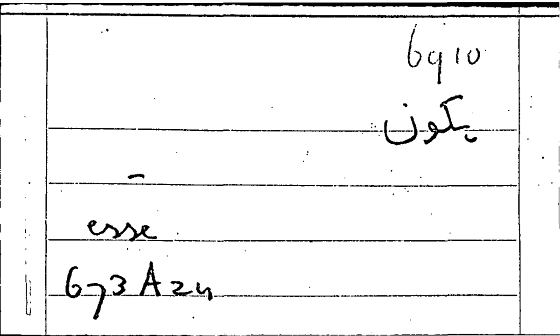 6910
يكون
-
esse
673 A 24